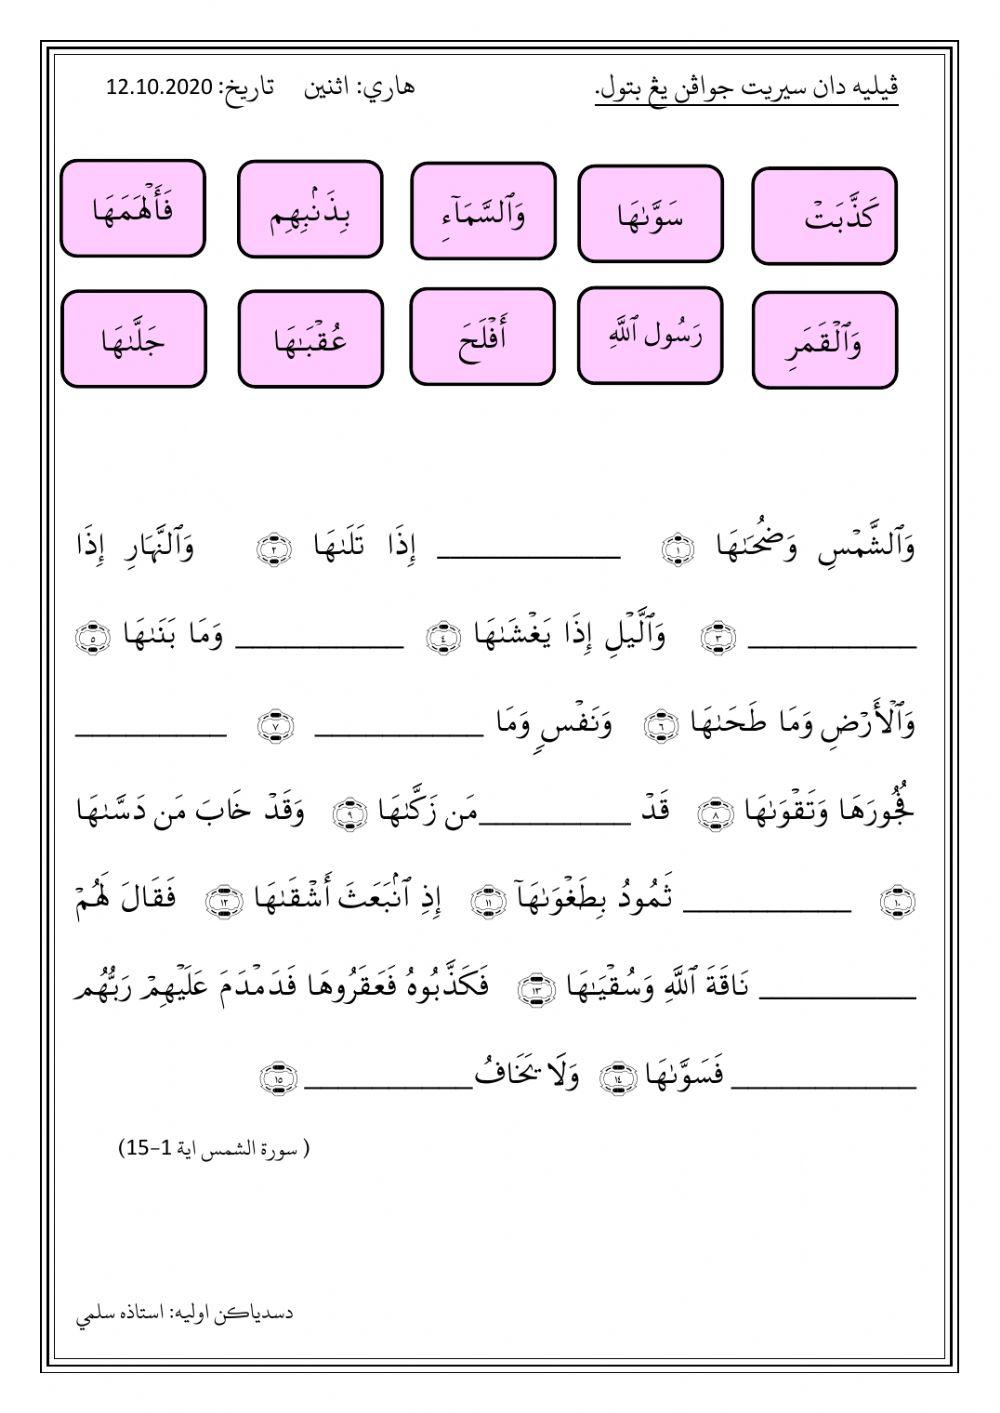 ڤيليه دان سيريت جواڤن يڠ بتول. هاري: اثنين تاريخ: 12.10.2020
كَذَّبَتْ سَوَّىٰهَا وَٱلسَّمَآءِ بِذَنۢبِهِم فَأَلْهَمَهَا
وَٱلْقَمَرِ رَسُول ٱللَّهِ أَفْلَحَ عُقْبَـٰهَا جَلَّىٰهَا
وَٱلشَّمْسِ وَضُحَىٰهَا ١ ___________ إِذَا تَلَىٰهَا ٢ وَٱلنَّهَارِ إِذَا
___________ ٣ وَٱلَّيْلِ إِذَا يَغْشَىٰهَا ٤ ___________ وَمَا بَنَىٰهَا ٥
وَٱلْأَرْضِ وَمَا طَحَىٰهَا ٦ وَنَفْسٍ وَمَا ___________ ٧ ___________
فُجُورَهَا وَتَقْوَىٰهَا ٨ قَدْ ___________مَن زَكَّىٰهَا ٩ وَقَدْ خَابَ مَن دَسَّىٰهَا
١٠ ___________ ثَمُودُ بِطَغْوَىٰهَآ ١١ إِذِ ٱنۢبَعَثَ أَشْقَىٰهَا ١٢ فَقَالَ لَهُمْ
___________ نَاقَةَ ٱللَّهِ وَسُقْيَـٰهَا ١٣ فَكَذَّبُوهُ فَعَقَرُوهَا فَدَمْدَمَ عَلَيْهِمْ رَبُّهُم
___________ فَسَوَّىٰهَا ١٤ وَلَا يَخَافُ___________ ١٥
( سورة الشمس اية 1-15)
دسدياكن اوليه: استاذه سلمي